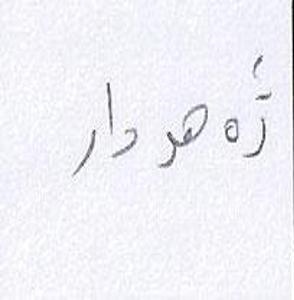 ژەهردار